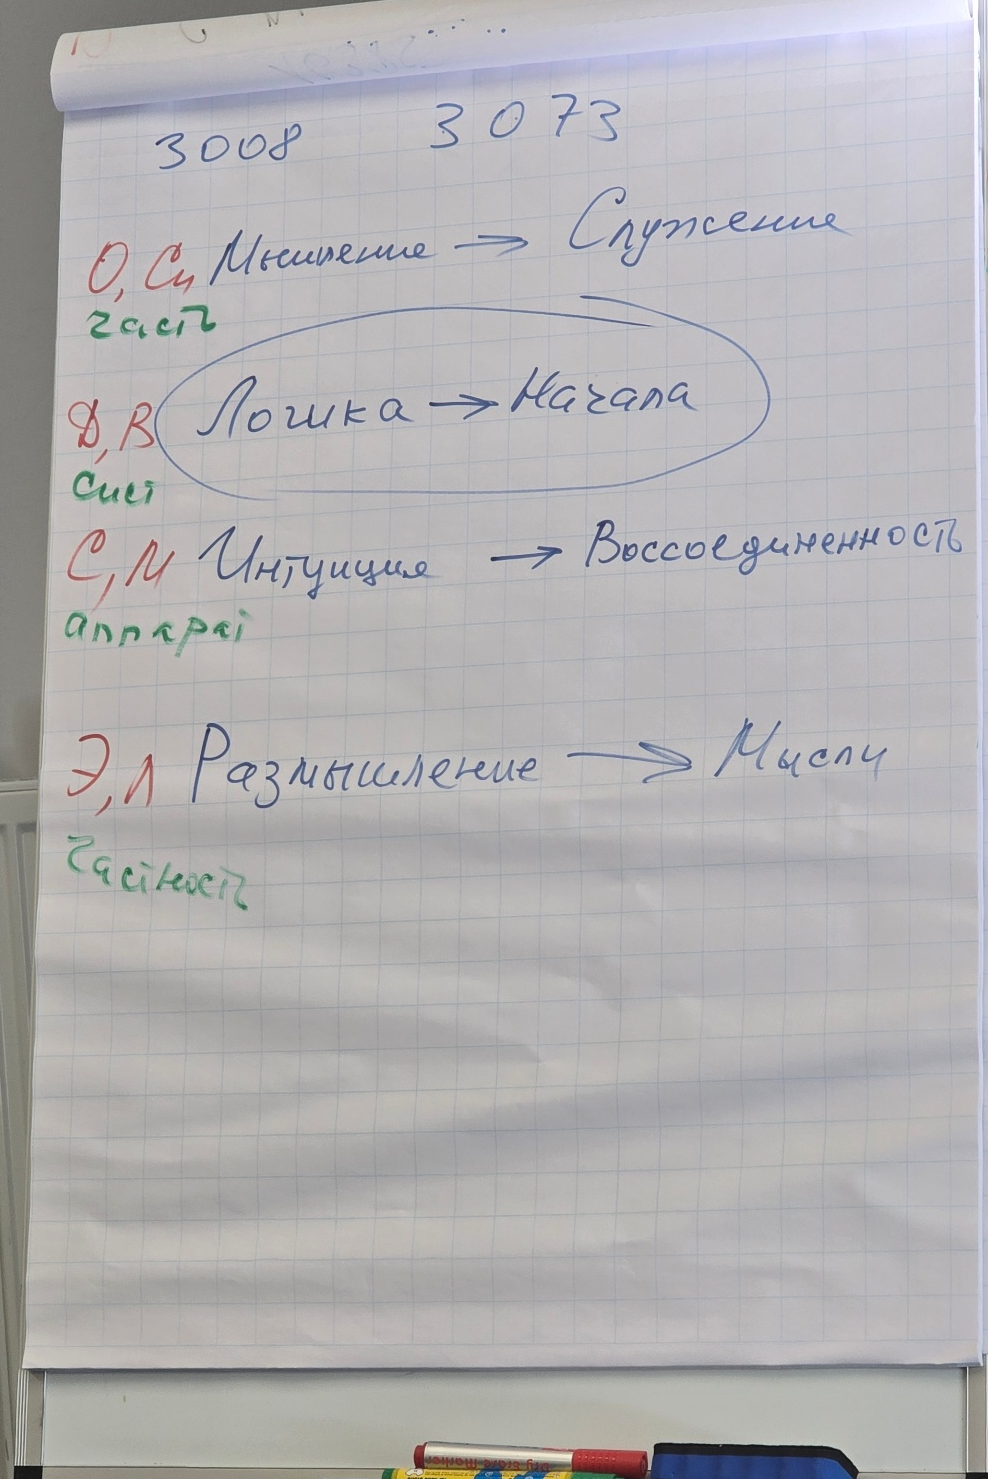 3008 3073
О, Си Мышление → Служение
часть
Д, В Логика → Начала
сист
С, М Интуиция → Воссоединенность
аппарат
Э, Л Размышление → Мысли
частность
Dry Erase Marker